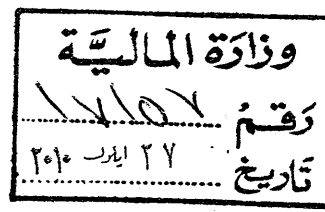 وزارة الماليَّة
رقم ١٧١٥٧
تاريخ ٢٧ ايلول ٢٠١٠